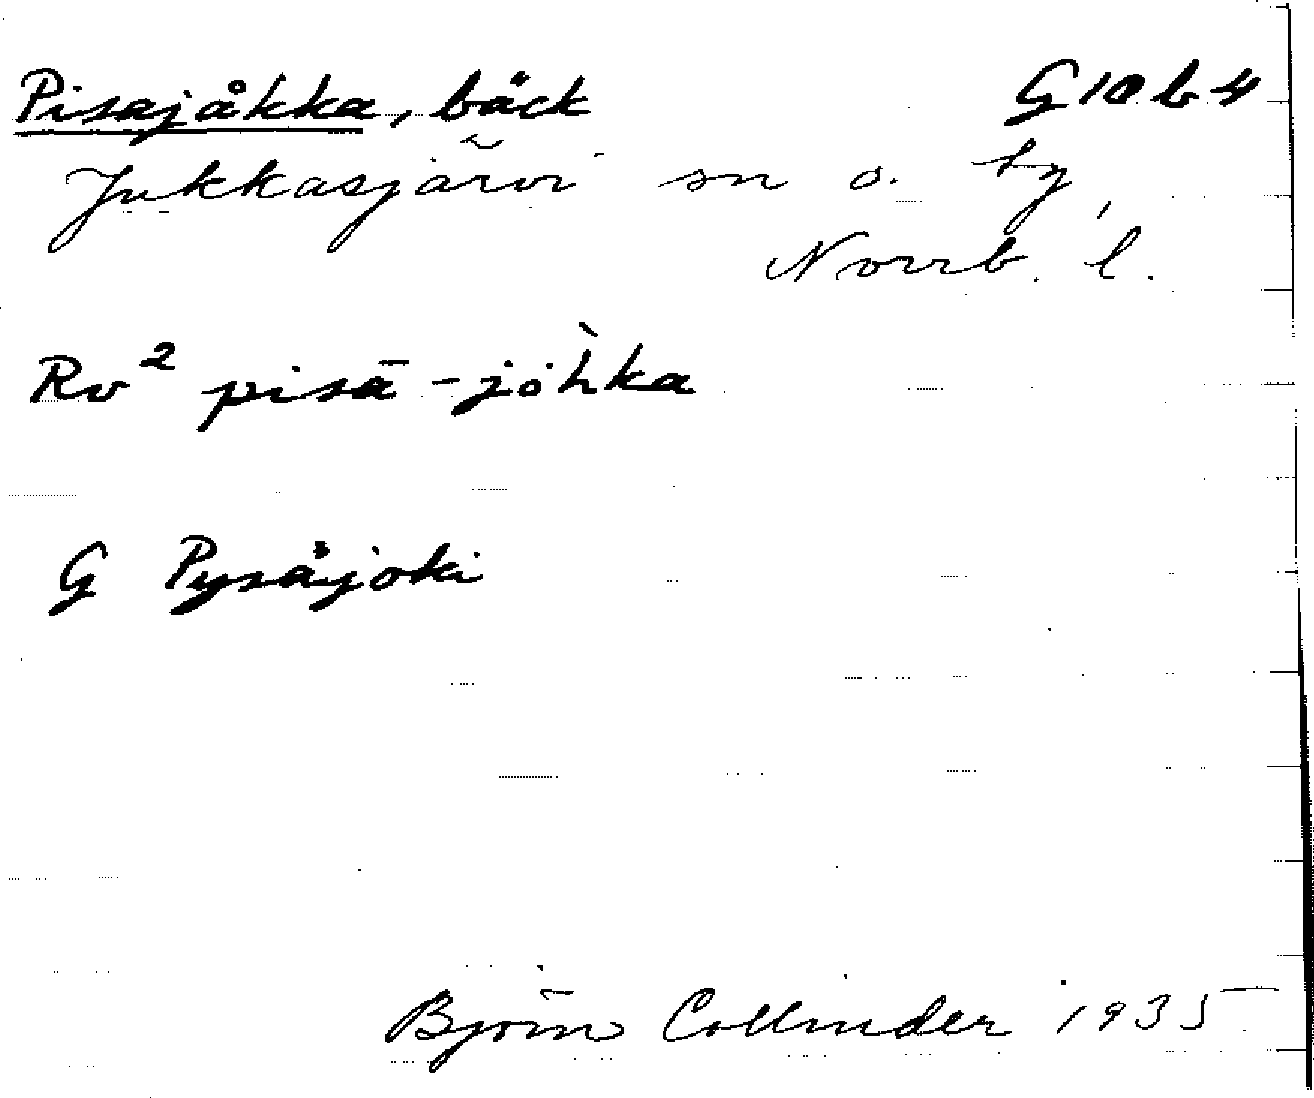 Pisajåkka, bäck G 10 b 4
Jukkasjärvi sn o. by,
Norrb. l.
Rv² pisā-jòh̀ka
G Pysäjoki
Björn Collinder 1935